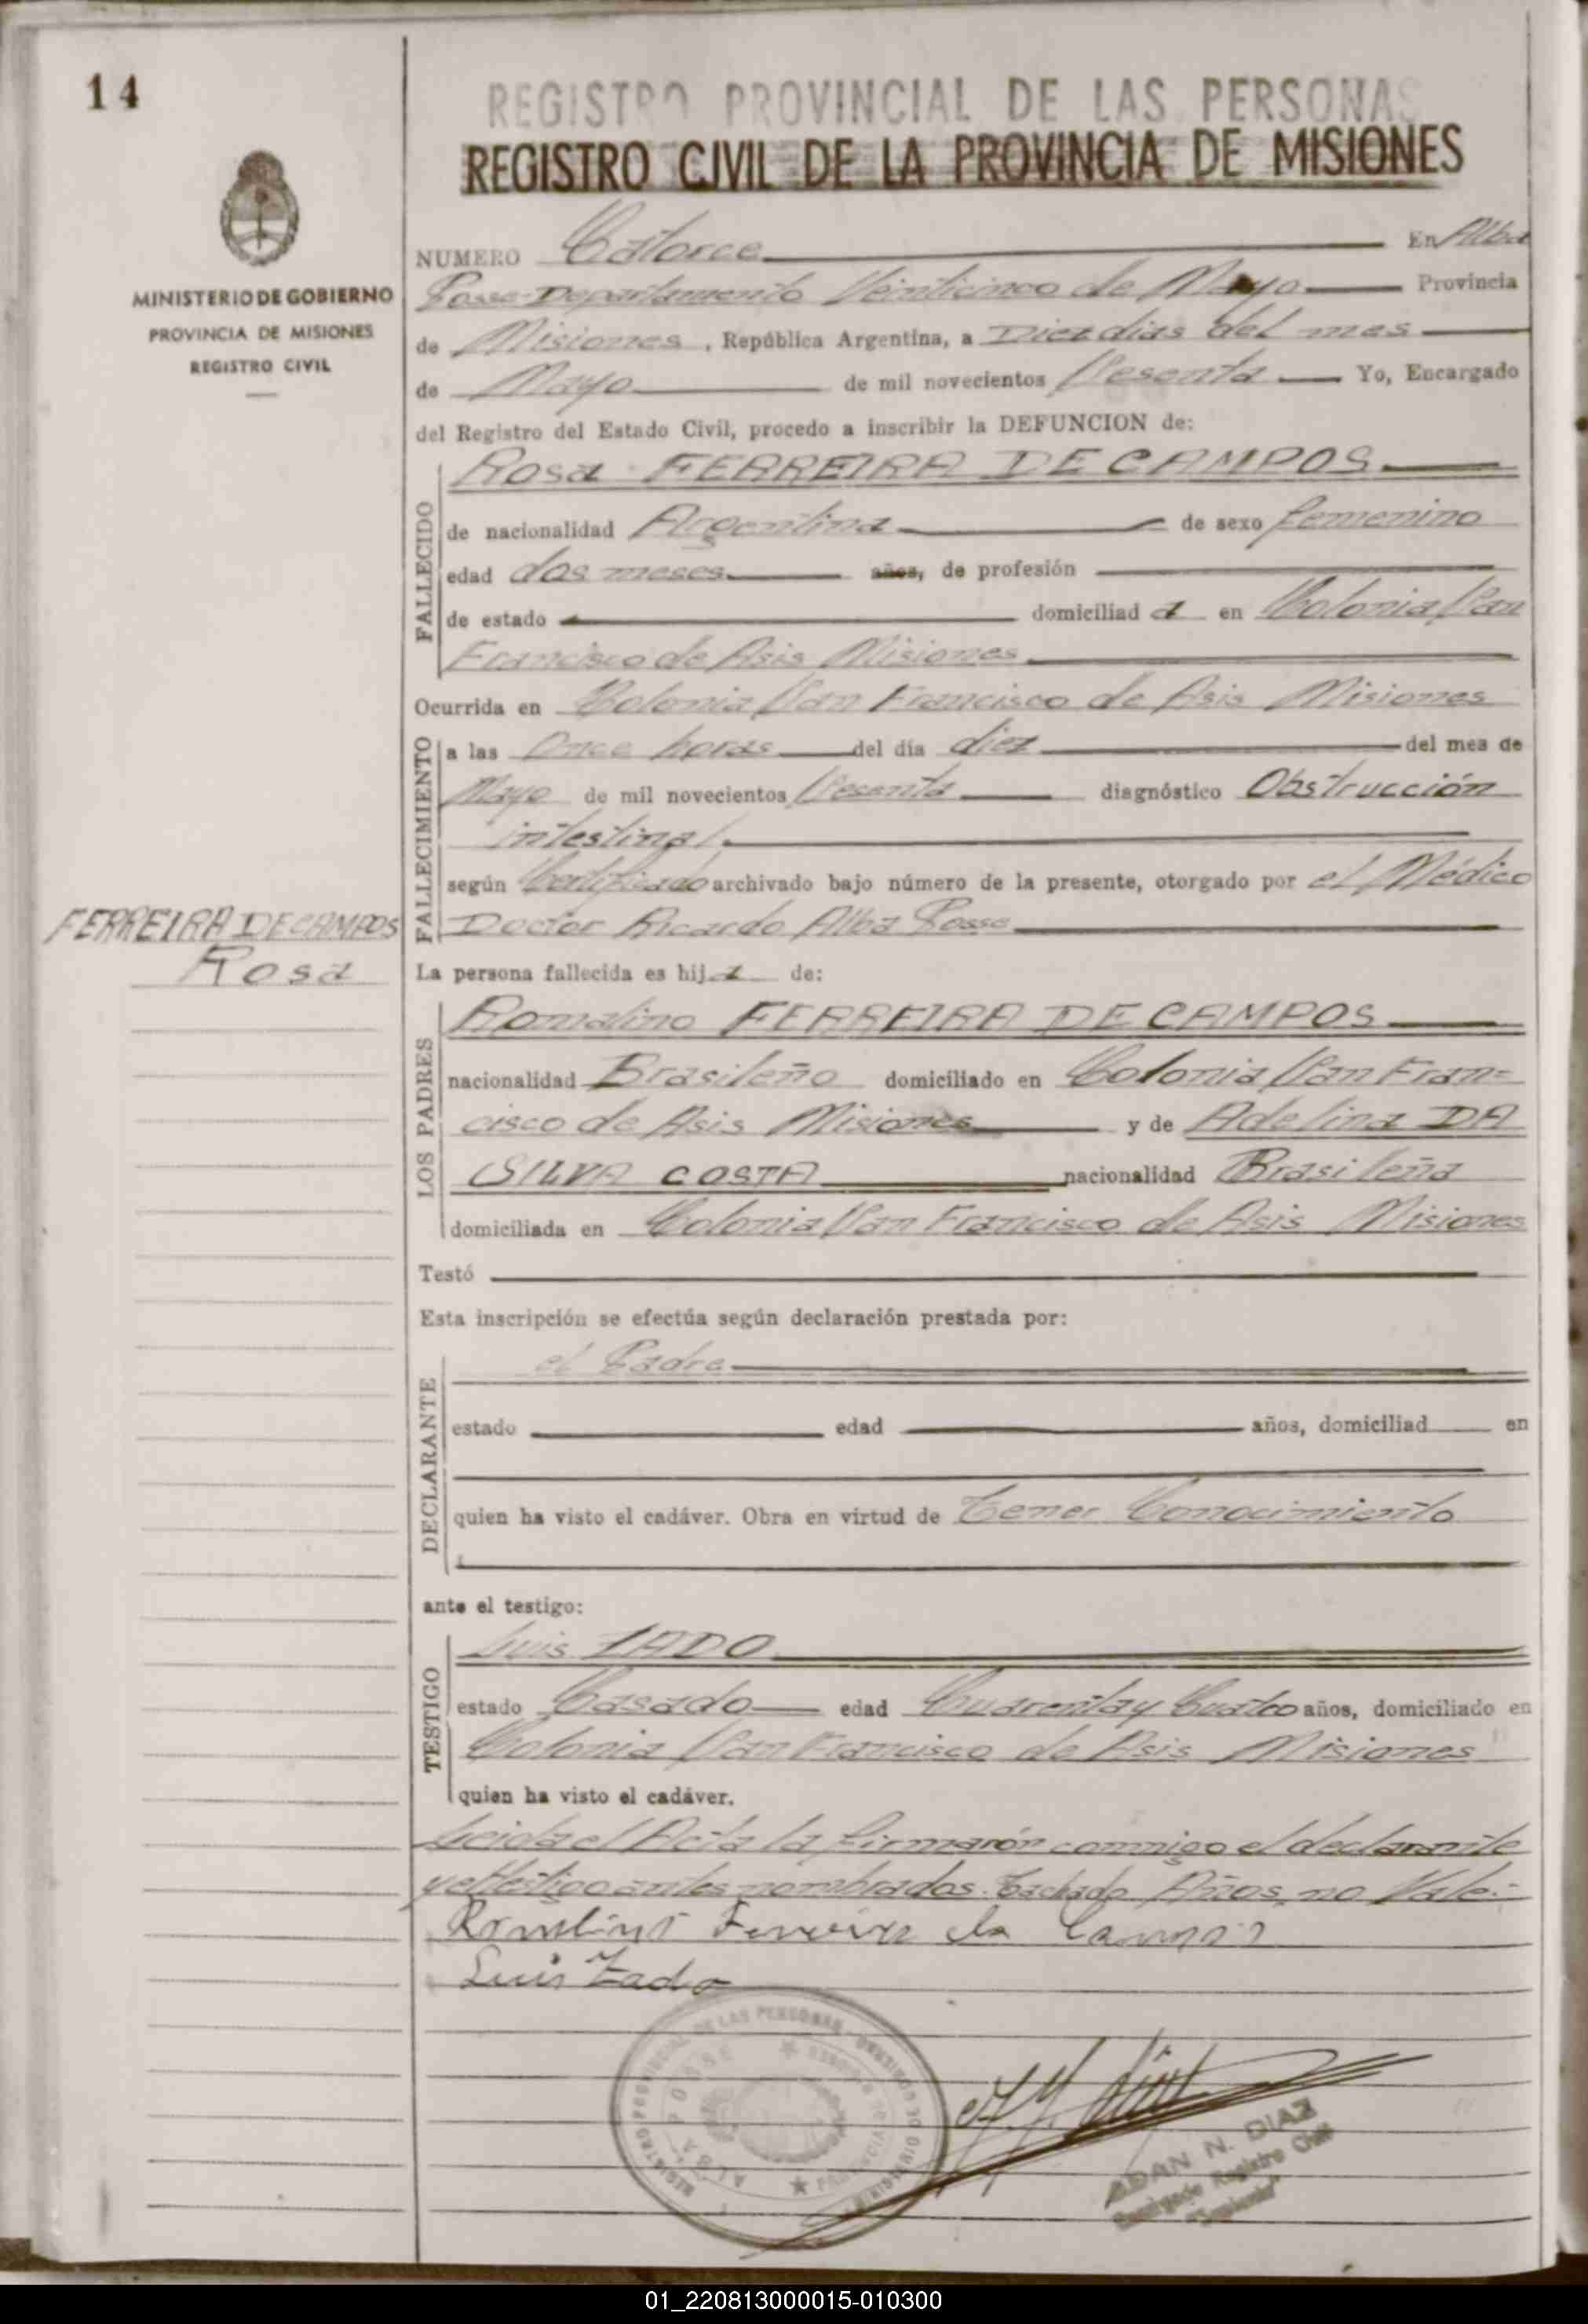 14
REGISTRO PROVINCIAL DE LAS PERSONAS
REGISTRO CIVIL DE LA PROVINCIA DE MISIONES
MINISTERIO DE GOBIERNO
PROVINCIA DE MISIONES
REGISTRO CIVIL
NUMERO Catorce En Alba
Posse-Departamento Veinticinco de Mayo Provincia
de Misiones, República Argentina, a Diez dias del mes
de Mayo de mil novecientos Sesenta Yo, Encargado
del Registro del Estado Civil, procedo a inscribir la DEFUNCION de:
FALLECIDO
Rosa FERREIRA DE CAMPOS
de nacionalidad Argentina de sexo femenino
edad dos meses años, de profesión
de estado domiciliad a en Colonia San
Francisco de Asis Misiones
Ocurrida en Colonia San Francisco de Asis Misiones
FALLECIMIENTO
a las Once horas del día diez del mes de
Mayo de mil novecientos Sesenta diagnóstico Obstrucción
intestinal.
según Certificado archivado bajo número de la presente, otorgado por el Médico
Doctor Ricardo Alba Posse
FERREIRA DE CAMPOS
Rosa
La persona fallecida es hija de:
LOS PADRES
Romalino FERREIRA DE CAMPOS
nacionalidad Brasileño domiciliado en Colonia San Fran=
cisco de Asis Misiones y de Adelina DA
SILVA COSTA nacionalidad Brasileña
domiciliada en Colonia San Francisco de Asis Misiones
Testó
Esta inscripción se efectúa según declaración prestada por:
DECLARANTE
el Padre
estado edad años, domiciliad en
quien ha visto el cadáver. Obra en virtud de Tener Conocimiento
ante el testigo:
TESTIGO
Luis ZADO
estado Casado edad Cuarenta y Cuatro años, domiciliado en
Colonia San Francisco de Asis Misiones
quien ha visto el cadáver.
Leida el Acta la firmarón conmigo el declarante
y el testigo antes nombrados. Tachado Años, no Vale.-
Ferreira de Campos
Luis Zado
REGISTRO PROVINCIAL DE LAS PERSONAS
ALBA POSSE
ADAN N. DIAZ
Encargado Registro Civil
01_220813000015-010300